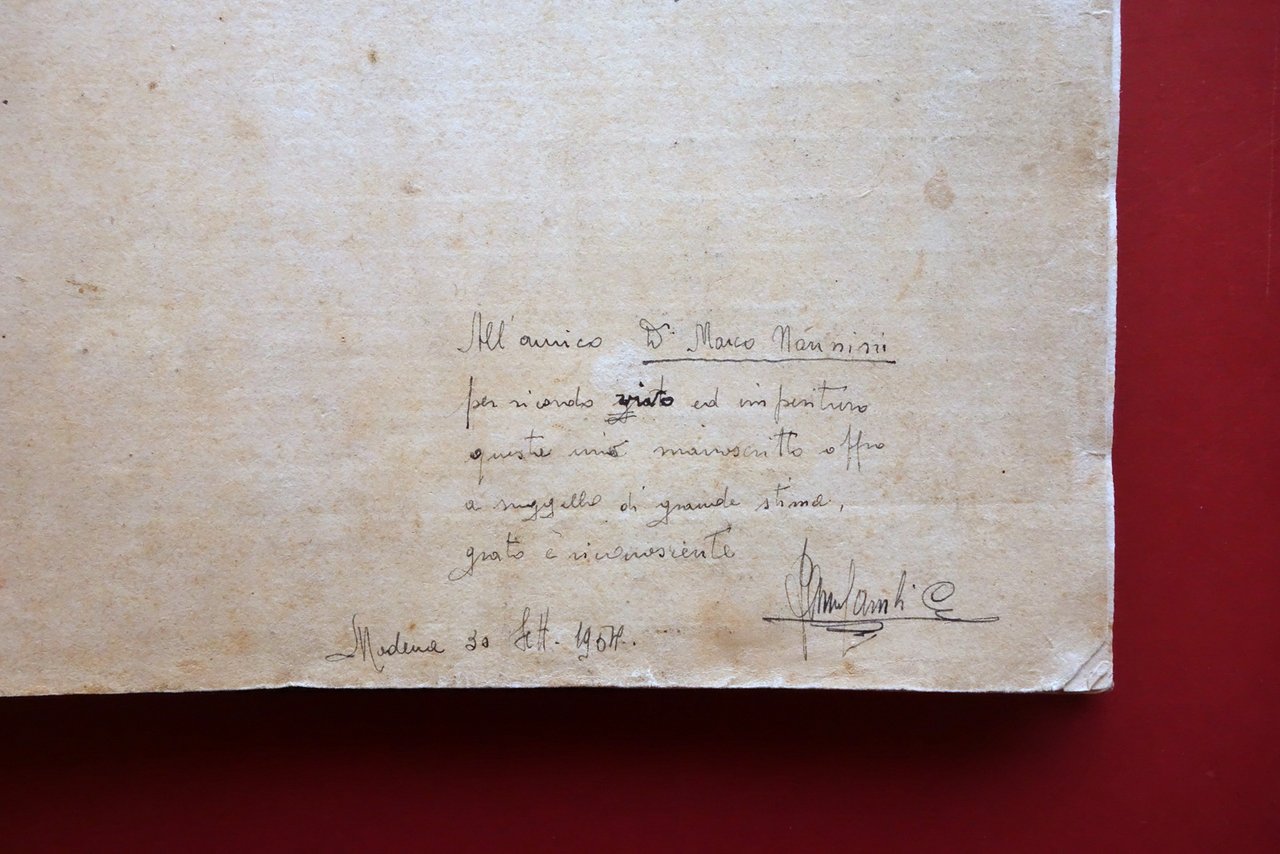 All'amico Dr Marco Nannini
per ricordo grato ed imperituro
questo mio manoscritto offro
a suggello di grande stima,
grato e riconoscente
Modena 30 Sett. 1954.